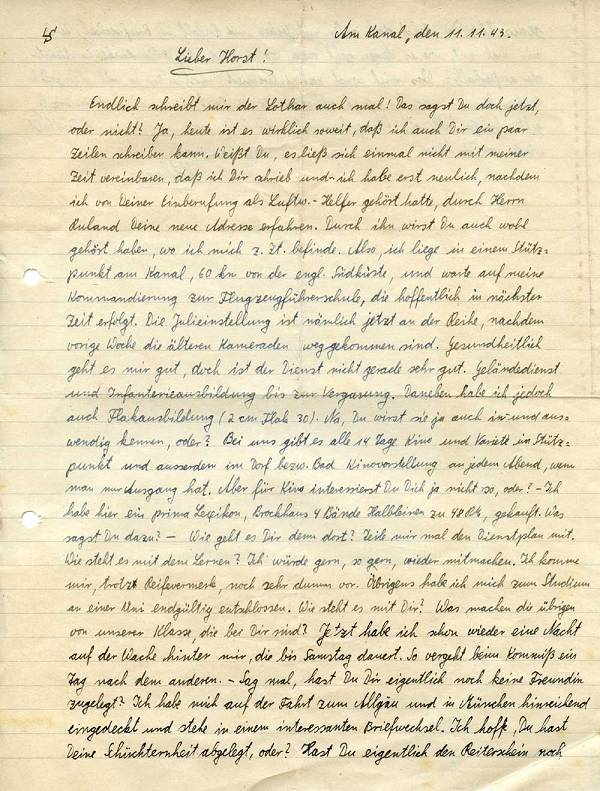 Am Kanal, den 11.11.43.
Lieber Horst!
Endlich schreibt mir der Lothar auch mal! Das sagst Du doch jetzt,
oder nicht? Ja, heute ist es wirklich soweit, daß ich auch Dir ein paar
Zeilen schreiben kann. Weißt Du, es ließ sich einmal nicht mit meiner
Zeit vereinbaren, daß ich Dir schrieb und ich habe erst neulich, nachdem
ich von Deiner Einberufung als Luftw.-Helfer gehört hatte, durch Herrn
Ruland Deine neue Adresse erfahren. Durch ihn wirst Du auch wohl
gehört haben, wo ich mich z. Zt. befinde. Also, ich liege in einem Stütz=
punkt am Kanal, 60 km von der engl. Südküste, und warte auf meine
Kommandierung zur Flugzeugführerschule, die hoffentlich in nächster
Zeit erfolgt. Die Julieinstellung ist nämlich jetzt an der Reihe, nachdem
vorige Woche die älteren Kameraden weggekommen sind. Gesundheitlich
geht es mir gut, doch ist der Dienst nicht gerade sehr gut. Geländedienst
und Infanterieausbildung bis zur Vergasung. Daneben habe ich jedoch
auch Flakausbildung (2 cm Flak 30). Na, Du wirst sie ja auch in- und aus-
wendig kennen, oder? Bei uns gibt es alle 14 Tage Kino und Varieté im Stütz=
punkt und ausserdem im Dorf bezw. Bad Kinovorstellung an jedem Abend, wenn
man nur Ausgang hat. Aber für Kino interessierst Du Dich ja nicht so, oder? - Ich
habe hier ein prima Lexikon, Brockhaus 4 Bände Halbleinen zu 48 RM, gekauft. Was
sagst Du dazu? - Wie geht es Dir denn dort? Teile mir mal den Dienstplan mit.
Wie steht es mit dem Lernen? Ich würde gern, so gern, wieder mitmachen. Ich komme
mir, trotz Reifevermerk, noch sehr dumm vor. Übrigens habe ich mich zum Studium
an einer Uni endgültig entschlossen. Wie steht es mit Dir? Was machen die übrigen
von unserer Klasse, die bei Dir sind? Jetzt habe ich schon wieder eine Nacht
auf der Wache hinter mir, die bis Samstag dauert. So vergeht beim Kommiß ein
Tag nach dem anderen. - Sag mal, hast Du Dir eigentlich noch keine Freundin
zugelegt? Ich habe mich auf der Fahrt zum Allgäu und in München hinreichend
eingedeckt und stehe in einem interessanten Briefwechsel. Ich hoff, Du hast
Deine Schüchternheit abgelegt, oder? Hast Du eigentlich den Reiterschein noch